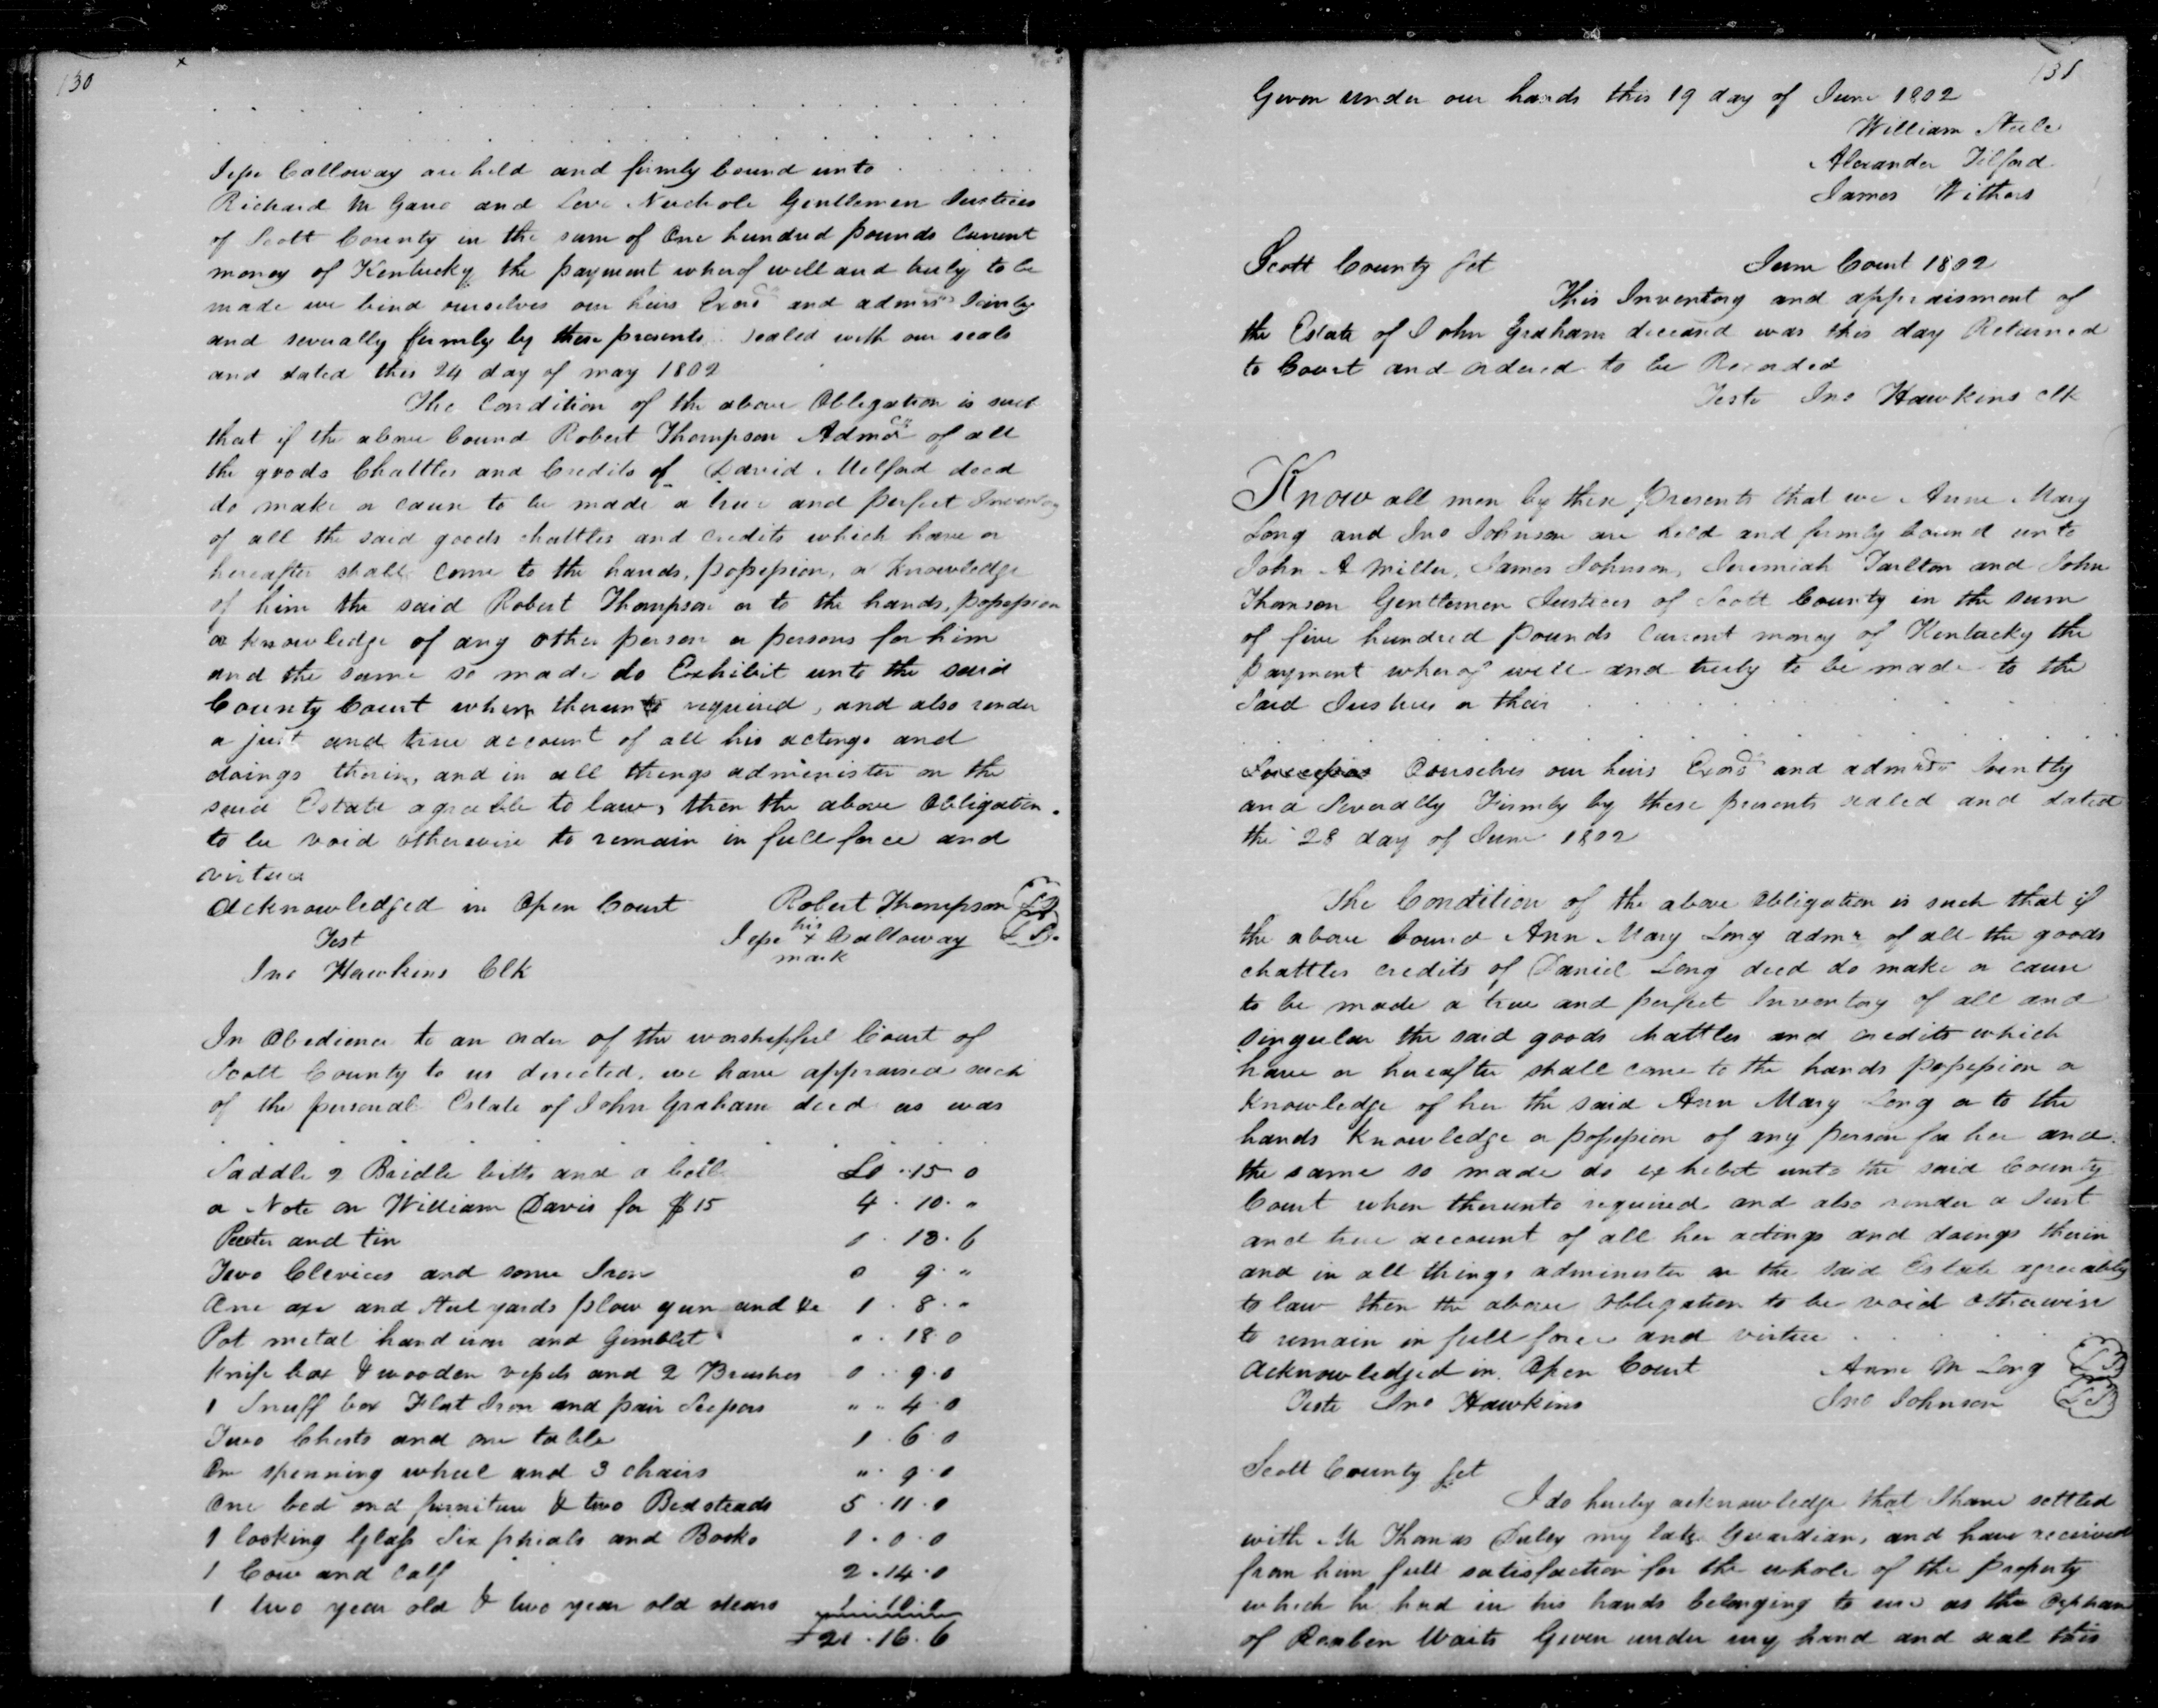 130
Jesse Calloway are held and firmly bound unto
Richard M Gano and Levi Nuchols Gentlemen Justices
of Scott County in the sum of One hundred pounds Current
money of Kentucky the payment wherof well and truly to be
made we bind ourselves our heirs Exors and admrs Jointly
and severally firmly by these presents sealed with our seals
and dated this 24 day of may 1802
The Condition of the above Obligation is such
that if the above bound Robert Thompson Admor of all
the goods Chattles and Credits of David Melford decd
do make or cause to be made a true and perfect Inventory
of all the said goods chattles and credits which have or
hereafter shall come to the hands, possession, or Knowledge
of him the said Robert Thompson or to the hands, possession
or knowledge of any other person or persons for him
and the same so made do Exhibit unto the said
County Court when therunto required, and also render
a just and true account of all his actings and
doings therin, and in all things administer on the
said Estate agreeable to law, then the above Obligation
to be void otherwise to remain in full force and
virtue
Acknowledged in Open Court Robert Thompson LS
Test Jesse his x mark Calloway LS
Jno Hawkins Clk
In Obedience to an order of the worshipfull Court of
Scott County to us directed, we have appraised such
of the personal Estate of John Graham decd as was
Saddle 2 Bridle bitts and a bell £0 . 15 0
a Note on William Davis for $15 4 . 10 . "
Peeter and tin 1 . 13 . 6
Two Clevices and some Iron 0 9 . "
One axe and Steel yards plow gun and &c 1 . 8 . "
Pot metal hand iron and Gimblet " . 18 0
Knife box & wooden vessels and 2 Brushes 0 . 9 . 0
1 Snuff box Flat Iron and pair Scissors " " 4 . 0
Two Chests and one table 1 . 6 0
One spenning wheel and 3 chairs " . 9 . 0
One bed and furniture & two Bedsteads 5 . 11 . 0
1 looking Glass Six phials and Books 1 . 0 . 0
1 Cow and Calf 2 . 14 . 0
1 two year old & two year old stears 1 . 10 . 0
£21 . 16 . 6
131
Given under our hands this 19 day of June 1802
William Steele
Alexander Tilford
James Withers
Scott County sct June Court 1802
This Inventory and appraisment of
the Estate of John Graham deceasd was this day Returned
to Court and ordered to be Recorded
Teste Jno Hawkins clk
Know all men by these presents that we Anne Mary
Long and Jno Johnson are held and firmly bound unto
John A Miller, James Johnson, Jeremiah Tarlton and John
Thomson Gentlemen Justices of Scott County in the sum
of five hundred pounds Current money of Kentucky the
payment wherof well and truly to be made to the
Said Justices or their
Ourselves our heirs Exors and admrs Jointly
and Severally Firmly by these presents sealed and dated
the 28 day of June 1802
The Condition of the above Obligation is such that if
the above bound Ann Mary Long admr of all the goods
chattles credits of Daniel Long decd do make or cause
to be made a true and perfect Inventory of all and
singular the said goods chattles and credits which
have or hereafter shall come to the hands possession or
Knowledge of her the said Ann Mary Long or to the
hands Knowledge or possession of any person for her and
the same so made do exhibit unto the said County
Court when therunto required and also render a Just
and true account of all her actings and doings therin
and in all things administer on the said Estate agreeably
to law then the above Obligation to be void otherwise
to remain in full force and virtue
Acknowledged in Open Court Anne M Long LS
Teste Jno Hawkins Jno Johnson LS
Scott County sct
I do hereby acknowledge that I have settled
with Mr Thomas Duley my late Guardian, and have received
from him full satisfaction for the whole of the property
which he had in his hands belonging to me as the Orphan
of Reuben Waits Given under my hand and seal this